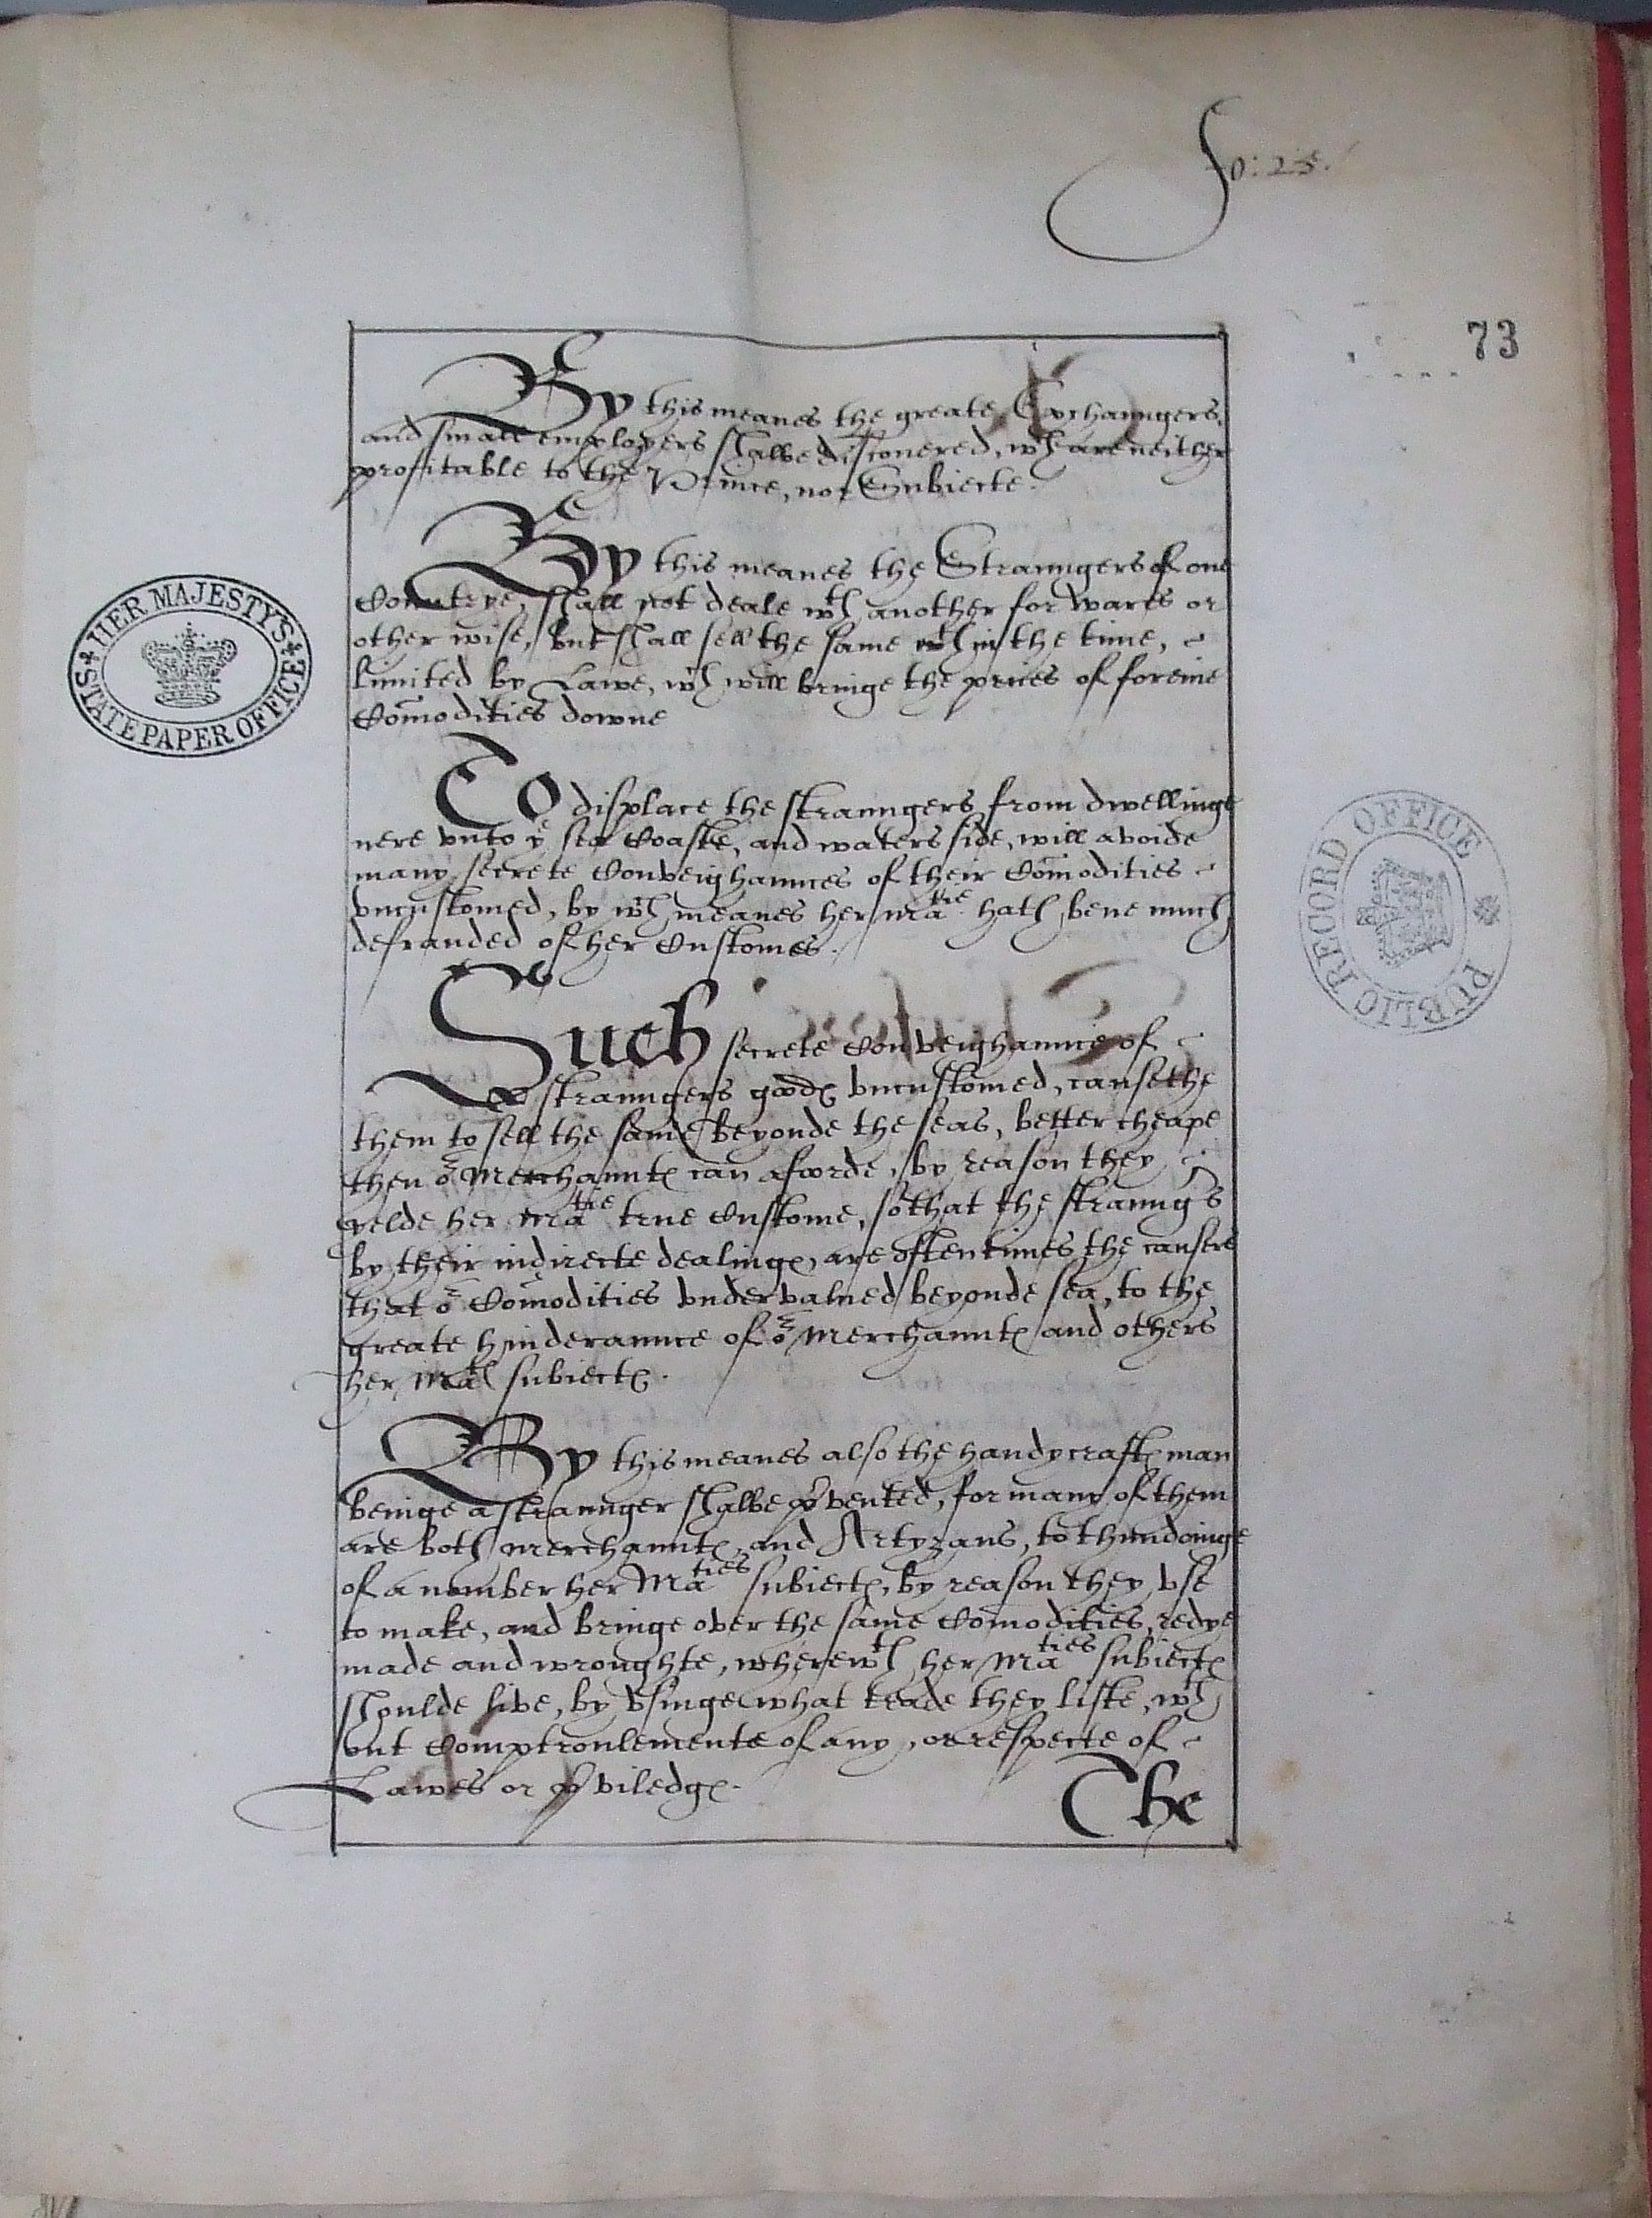 fo: 25.
73
By this meanes the greate Exchaungers,
and small employers shalbe discouered, wch are neither
profitable to the Prince, nor Subiecte.
By this meanes the Straungers of one
Countrye, shall not deale wth another for wares or
other wise, but shall sell the same wthin the time,
limited by Lawe, wch will bringe the prices of foreine
Comodities downe
To displace the straungers from dwellinge
nere vnto ye sea Coaste, and waters side, will avoide
many secrete Conveighaunces of their Comodities
vncustomed, by wch meanes her Matie hath bene much
defrauded of her Customes.
Such secrete Conveighaunce of
straungers goodes vncustomed, causethe
them to sell the same beyonde the seas, better cheape
then or Merchauntes can afoorde, by reason they
yelde her Matie true Custome, so that the straungrs
by their indirecte dealinges, are often times the causere
that or Comodities vndervalued beyonde sea, to the
greate hinderaunce of or Merchauntes and others
her Mats subiectes.
By this meanes also the handycraftes man
beinge a straunger shalbe prvented, for many of them
are both merchauntes and Artyzans, to thundoinge
of a nomber her Maties subiectes, by reason they vse
to make, and bringe over the same Comodities, redye
made and wroughte, wherewth her Maties subiectes
shoulde live, by vsinge what trade they liste, wth
out Comptroulemente of any, or respecte of
Lawes or priviledges.
The
HER MAJESTY'S STATE PAPER OFFICE
PUBLIC RECORD OFFICE